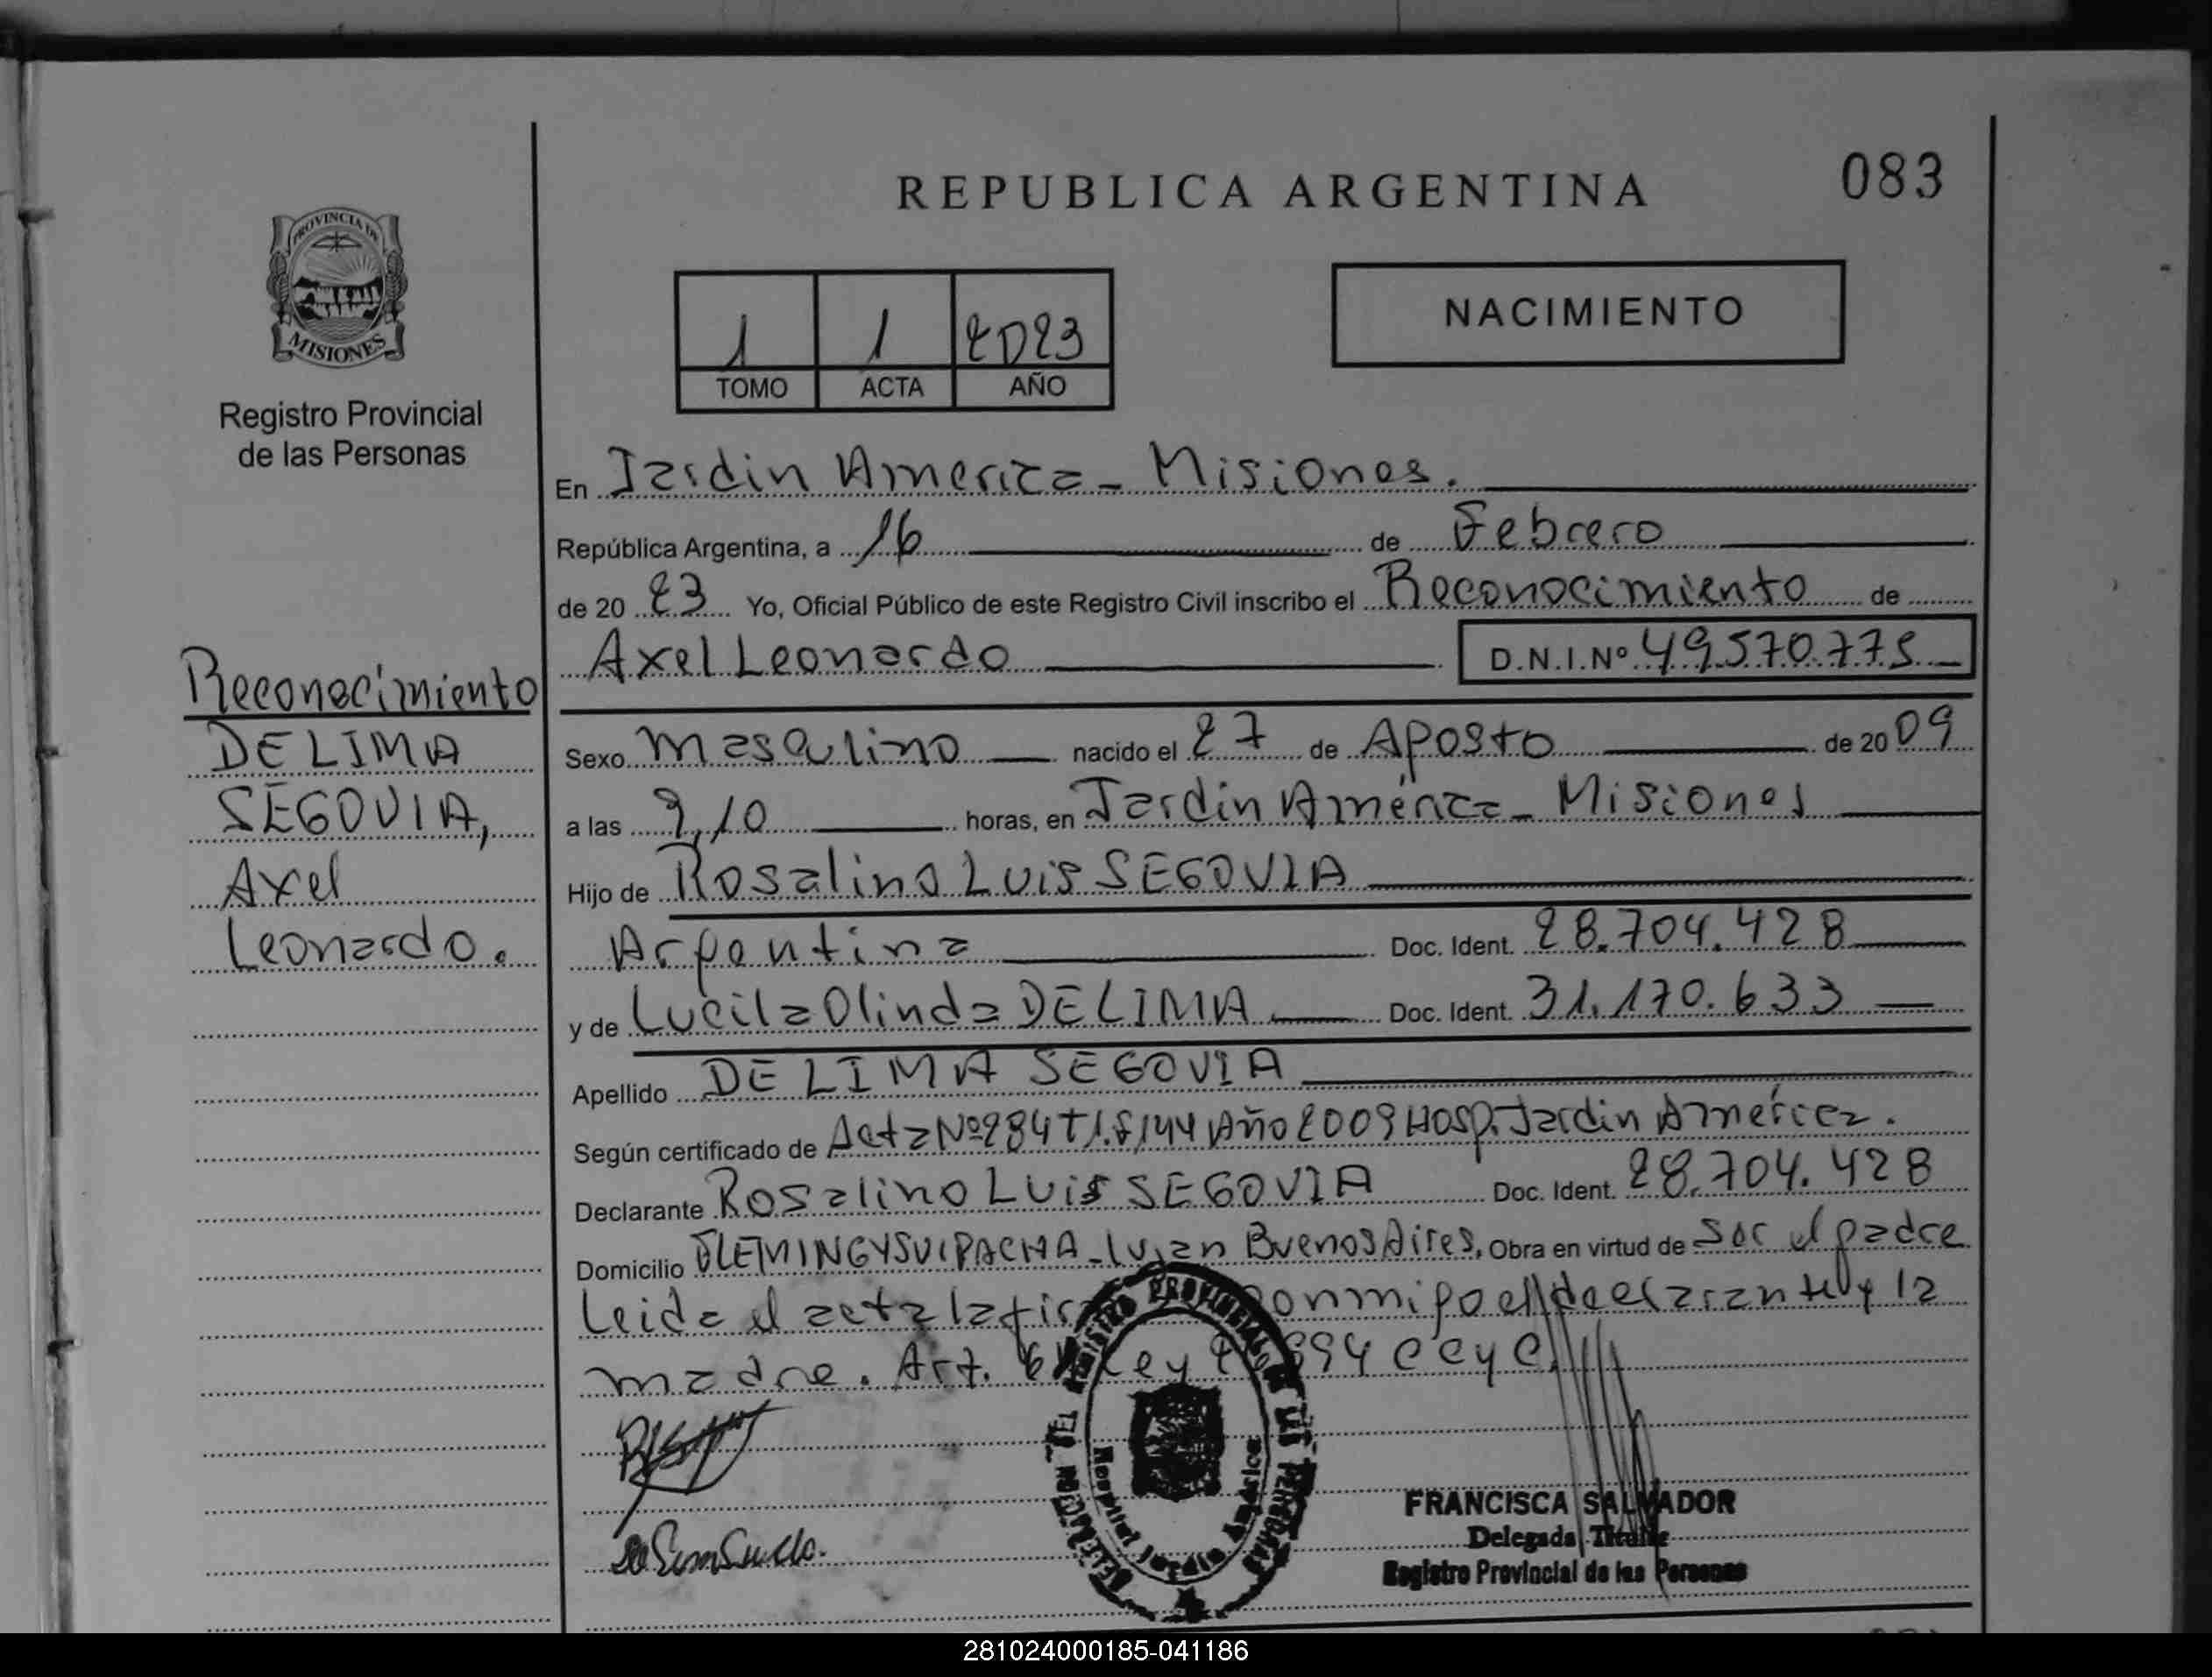 083
REPUBLICA ARGENTINA
PROVINCIA DE
MISIONES
Registro Provincial
de las Personas
1 1 2023
TOMO ACTA AÑO
NACIMIENTO
En Jardin America - Misiones.
República Argentina, a 16 de Febrero
de 20 23 Yo, Oficial Público de este Registro Civil inscribo el Reconocimiento de
Axel Leonardo D.N.I.Nº 49.570.775
Reconocimiento
DE LIMA
SEGOVIA,
Axel
Leonardo.
Sexo Masculino nacido el 27 de Agosto de 20 09
a las 9,10 horas, en Jardin América - Misiones
Hijo de Rosalino Luis SEGOVIA
Argentina Doc. Ident. 28.704.428
y de Lucila Olinda DE LIMA Doc. Ident. 31.170.633
Apellido DE LIMA SEGOVIA
Según certificado de Acta Nº 284 T1. F144 Año 2009 Hosp. Jardin América.
Declarante Rosalino Luis SEGOVIA Doc. Ident. 28.704.428
Domicilio FLEMING Y SUIPACHA - Lujan Buenos Aires, Obra en virtud de ser el padre
Leida el acta la conmigo el declarante y la
madre. Art. Ley CCyC
REGISTRO PROVINCIAL DE LAS PERSONAS
FRANCISCA SALVADOR
Delegada Titular
Registro Provincial de las Personas
281024000185-041186